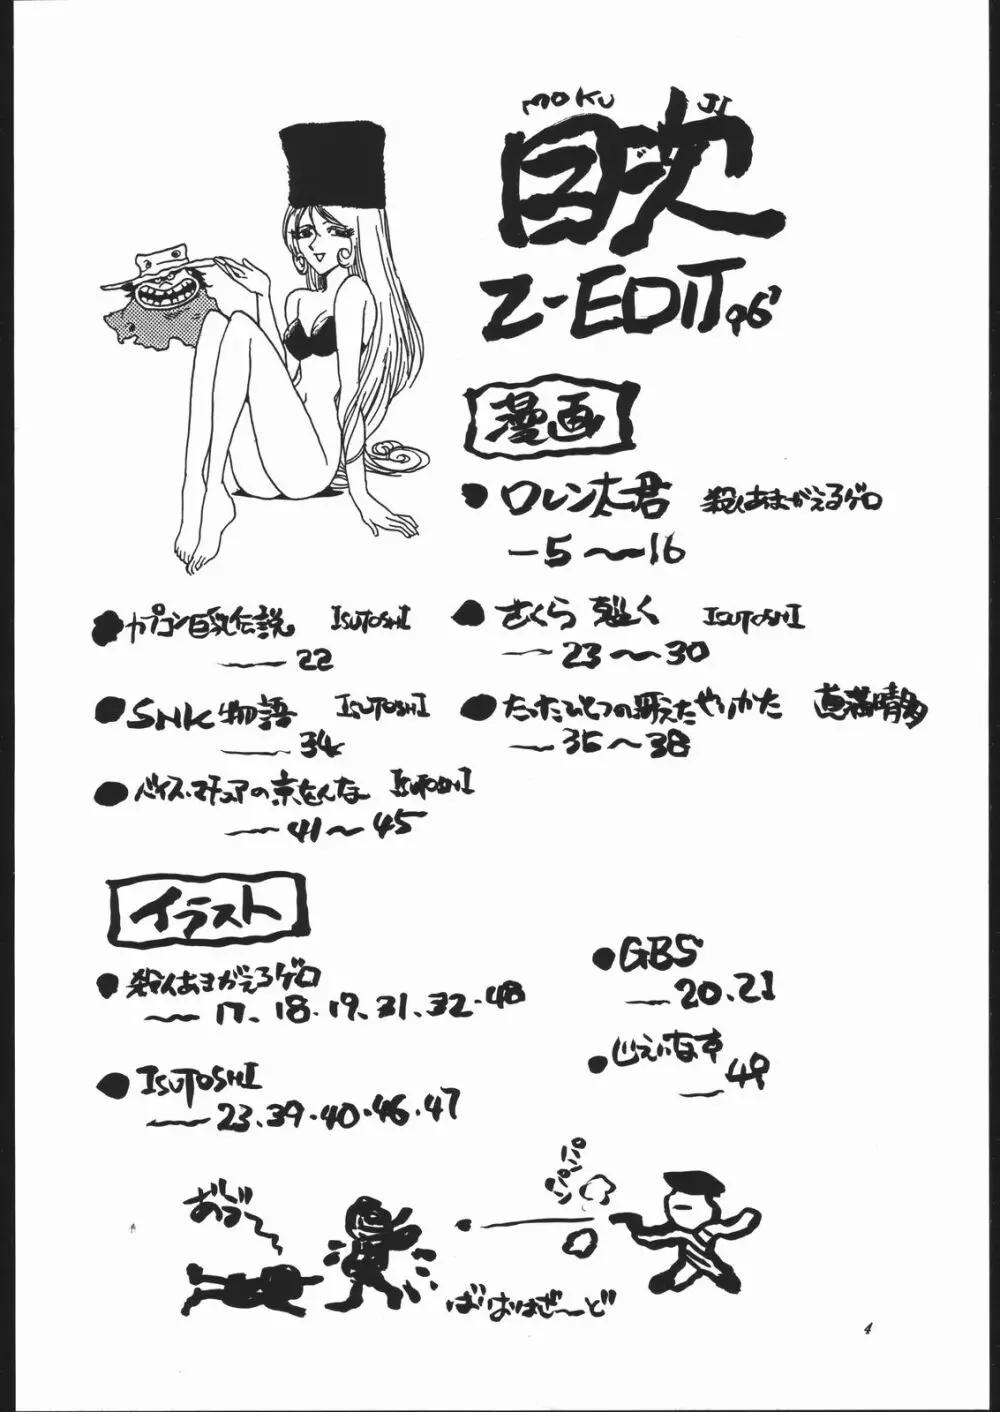 MOKU JI
目次
Z-EDIT 96'
漫画
● ロレン太君 殺人あまがえるゲロ
—5〜16
● カプコン巨乳伝説 ISUTOSHI
—22
● さくら ISUTOSHI
—23〜30
● SNK物語 ISUTOSHI
—34
● たったひとつの冴えたやりかた 真満晴多
—35〜38
● バイス・マチュアの京をんな ISUTOSHI
—41〜45
イラスト
● 殺人あまがえるゲロ
—17、18・19、31、32・48
● GBS
—20、21
● ISUTOSHI
—23、39・40・46・47
● じえいなす
—49
パンパン
あづー
ばいおはざーど
4